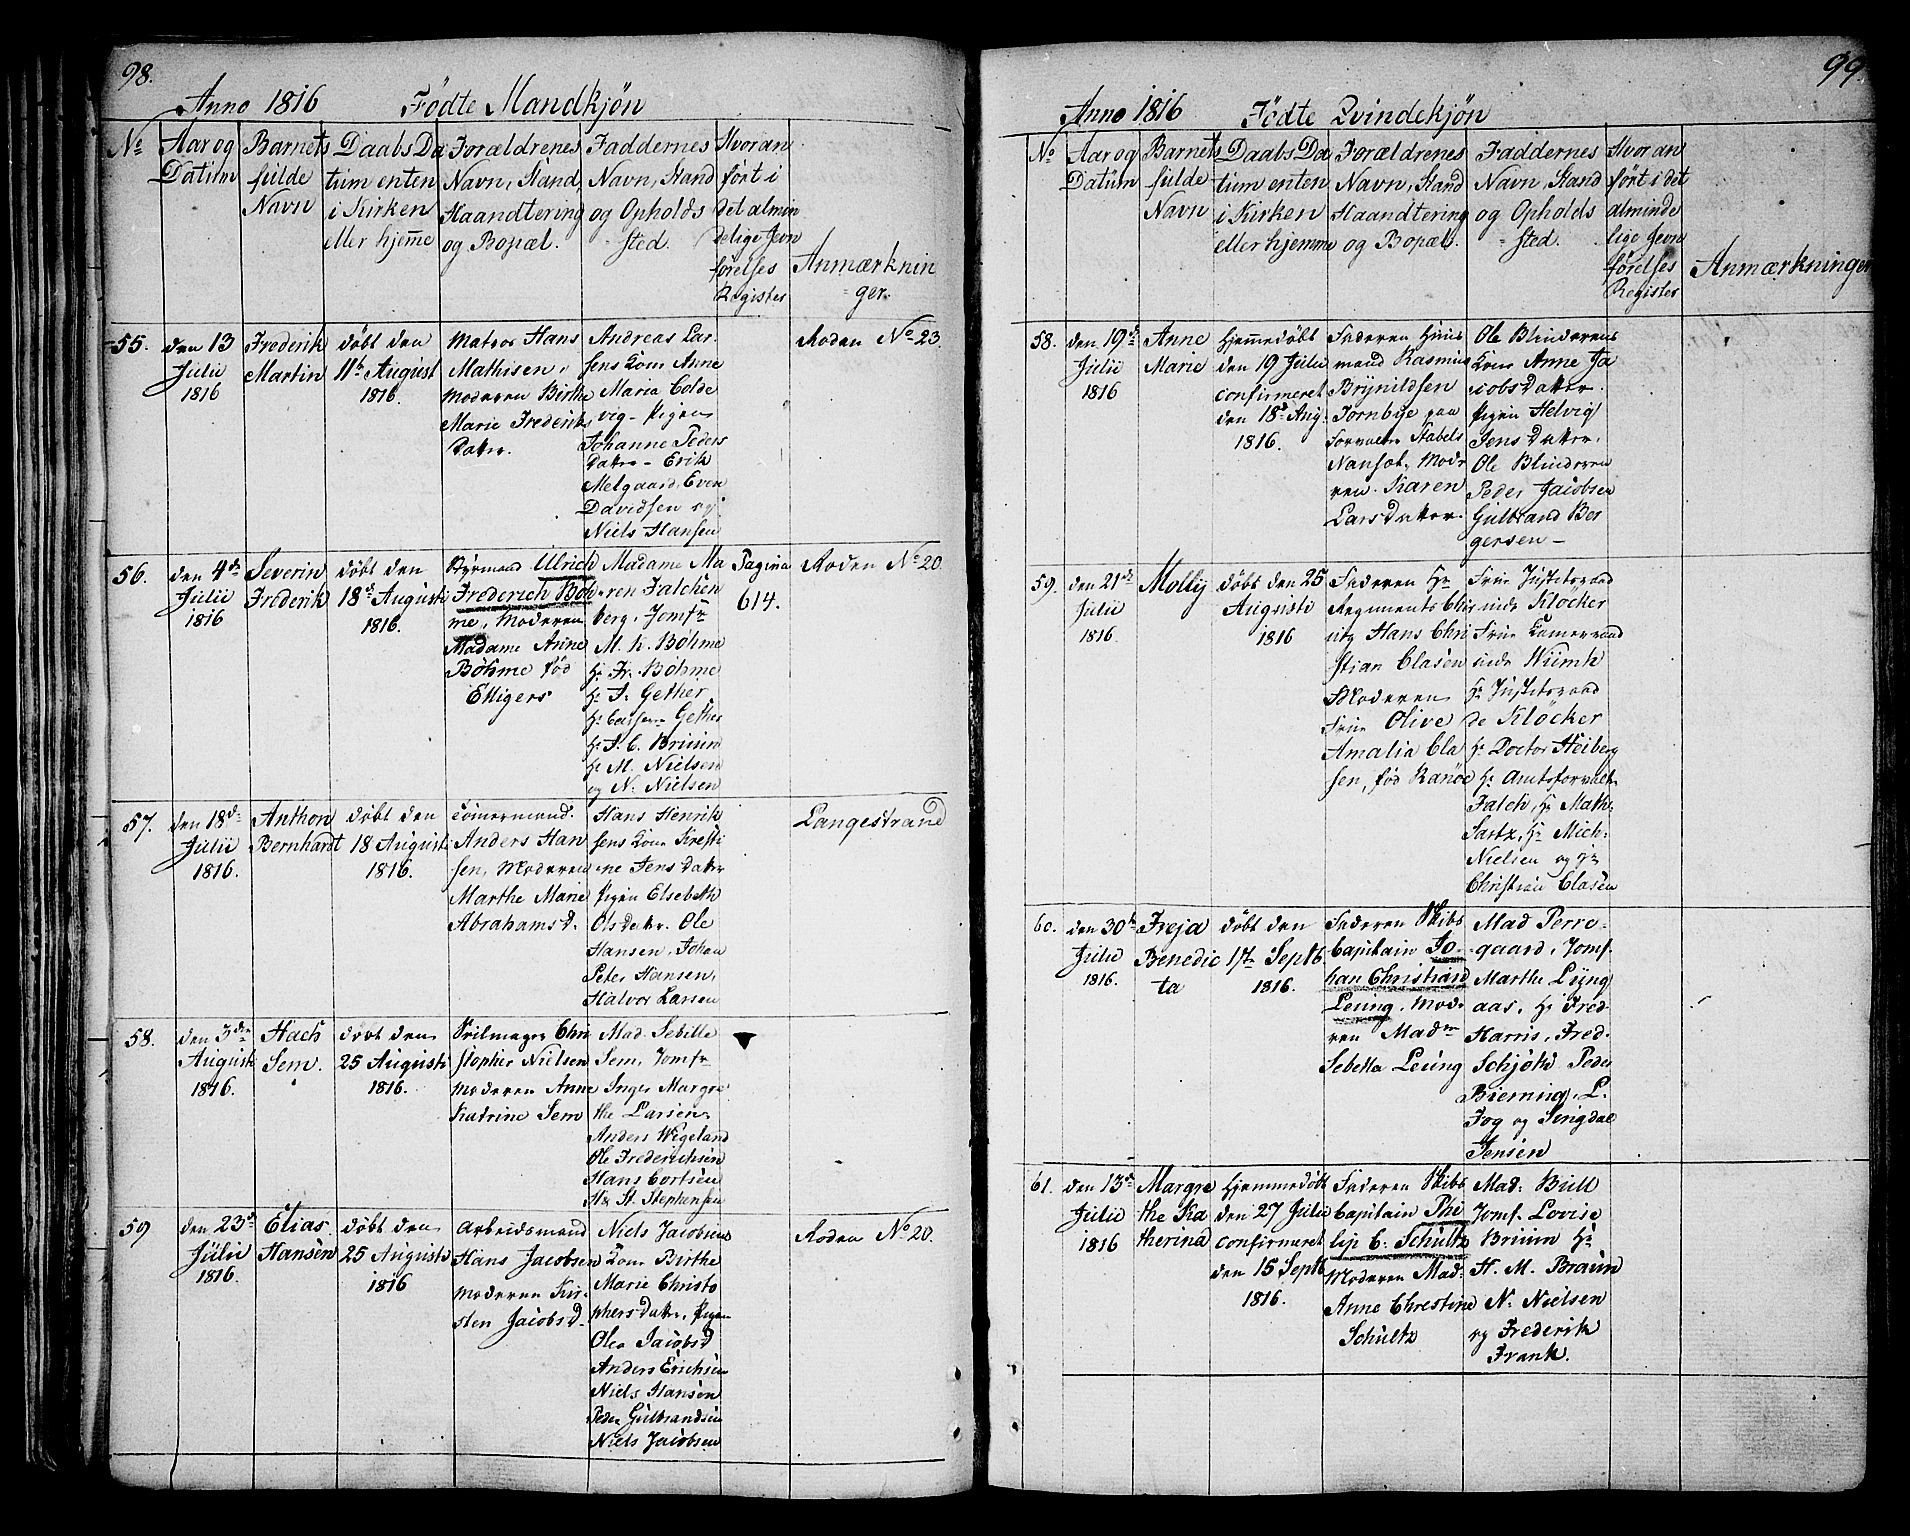 98.
Anno 1816 Fødte Mandkjøn
No
Aar og
Datum
Barnets
fulde
Navn
Daabs Da
tum enten
i Kirken
eller hjem̄e
Forældrenes
Navn, Stand,
Haandtering
og Bopæl.
Faddernes
Navn, Stand
og Opholds
sted.
Hvor an
ført i
det almin
delige Jevn
førelses
Register
Anmærknin
ger.
55.
den 13
Julii
1816
Frederik
Martin
døbt den
11te August
1816.
Matros Hans
Mathisen,
Moderen Birthe
Marie Frederiks
Datter.
Andreas Lar
sens Kone Anne
Maria Colde
vig - Pigen
Johanne Peders
Datter - Erik
Melgaard, Even
Davidsen og
Niels Hansen
Roden No 23.
56.
den 4de
Julii
1816
Severin
Frederik
døbt den
18de August
1816.
Styrmand Ulrich
Frederich Bøh
me, Moderen
Madame Anne
Böhme fød
Ettigers
Madame Ma
ren Falchen
berg, Jomfr
M. K. Bøhme
Hr Fr. Bøhme
Hr J. Gether
Hr Carsten Gether
Hr J. C. Bruun
Hr M. Nielsen
og N. Nielsen
Pagina
614.
Roden No 20.
57.
den 18de
Julii
1816.
Anthon
Bernhardt
døbt den
18 August
1816.
Tømermand.
Anders Han
sen, Moderen
Marthe Marie
Abrahamsd.
Hans Henrik
sens Kone Kresti
ne Jens Datter
Pigen Elsebeth
Olsdatr. Ole
Hansen, Johan
Peter Hansen,
Halvor Larsen
Langestrand
58.
den 3die
August
1816.
Hach
Sem.
døbt den
25 August
1816.
Seilmager Chri
stopher Nielsen
Moderen Anne
Katrine Sem
Mad. Sebille
Sem, Jomfr
Inger Margre
the Larsen,
Anders Wigeland
Ole Frederichsen
Hans Cortsen
Hr St. Stephansen
59
den 23de
Julii
1816.
Elias
Hansen
døbt den
25 August
1816
Arbeidsmand
Hans Jacobsen
Moderen Kir
sten Jacobsd.
Niels Jacobsens
Kone Birthe
Marie Christo
phersdatter, Pigen
Olea Jacobsd
Anders Erichsen
Niels Hansen
Peder Gulbrandsen
Niels Jacobsen
Roden No 20.
99.
Anno 1816 Fødte Qvindekjøn
No
Aar og
Datum
Barnets
fulde
Navn
Daabs Da
tum enten
i Kirken
eller hjemme
Forældrenes
Navn, Stand
Haandtering
og Bopæl.
Faddernes
Navn, Stand
og Opholds
sted.
Hvor an
ført i det
alminde
lige Jevn
førelses
Register
Anmærkninger
58.
den 19de
Julii
1816
Anne
Marie
Hjemmedøbt
den 19 Julii
confirmeret
den 18de Aug.
1816.
Faderen Huus
mand Rasmus
Brynildsen
Tornbye paa
Forvalter Stabels
Nanset. Mode
ren Karen
Larsdatter.
Ole Blinderens
Kone Anne Ja
cobsdatter.
Pigen Helvig
Jensdatter.
Ole Blinderen
Peder Jacobsen
Gulbrand Ber
gersen -
59.
den 21de
Julii
1816.
Molly
døbt den 25
Augusti
1816
Faderen Hr
Regiments Chir
urg Hans Chri
stian Clasen
Moderen
Frue Olive
Amalia Cla
sen, fød Ranøe
Frue Justitsraad
inde Kløcker
Frue Camerraad
inde Wiimh
Hr Justitsraad
de Kløcker
Hr Doctor Heiberg
Hr Amtsforvalter
Falch, Hr Math.
Sartz, Hr Mich.
Nielsen og Hr
Christian Clasen
60.
den 30te
Julii
1816.
Freja
Benedic
ta
døbt den
1ste Septb
1816.
Faderen Skibs
Capitain Jo
han Christian
Leüng, Mode
ren Madm
Sebella Leüng
Mad Perre
gaard, Jomf.
Marthe Lyng
aas, Hr Fred
Harris, Fred.
Schjøth Peder
Bierning, L.
Fog og Singdal
Jensen
61.
den 13de
Julii
1816
Margre
the Ka
therina
Hjemmedøbt
den 27 Julii
confirmeret
den 15 Septb
1816.
Faderen Skibs
Capitain Phi
lip C. Schultz
Moderen Mad.
Anne Chrestine
Schultz
Mad. Bull
Jomf. Lovise
Bruun Hr
H. M. Braün
N. Nielsen
og Frederik
Frank.